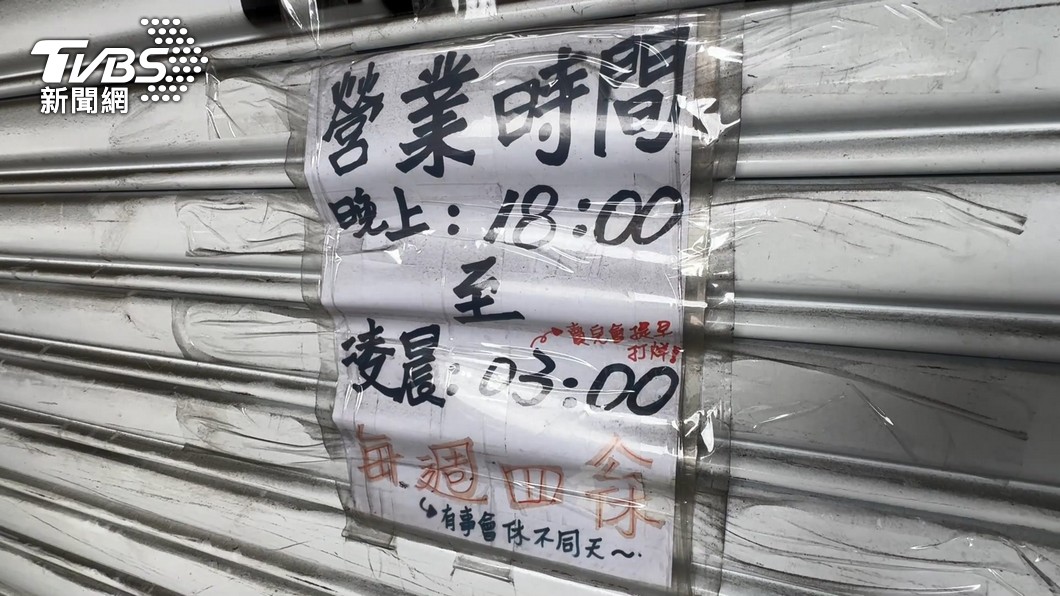 TVBS
新聞網
營業時間
晚上：18:00
至
賣完會提早
打烊!
凌晨：03:00
每週四公休
有事會休不同天～.